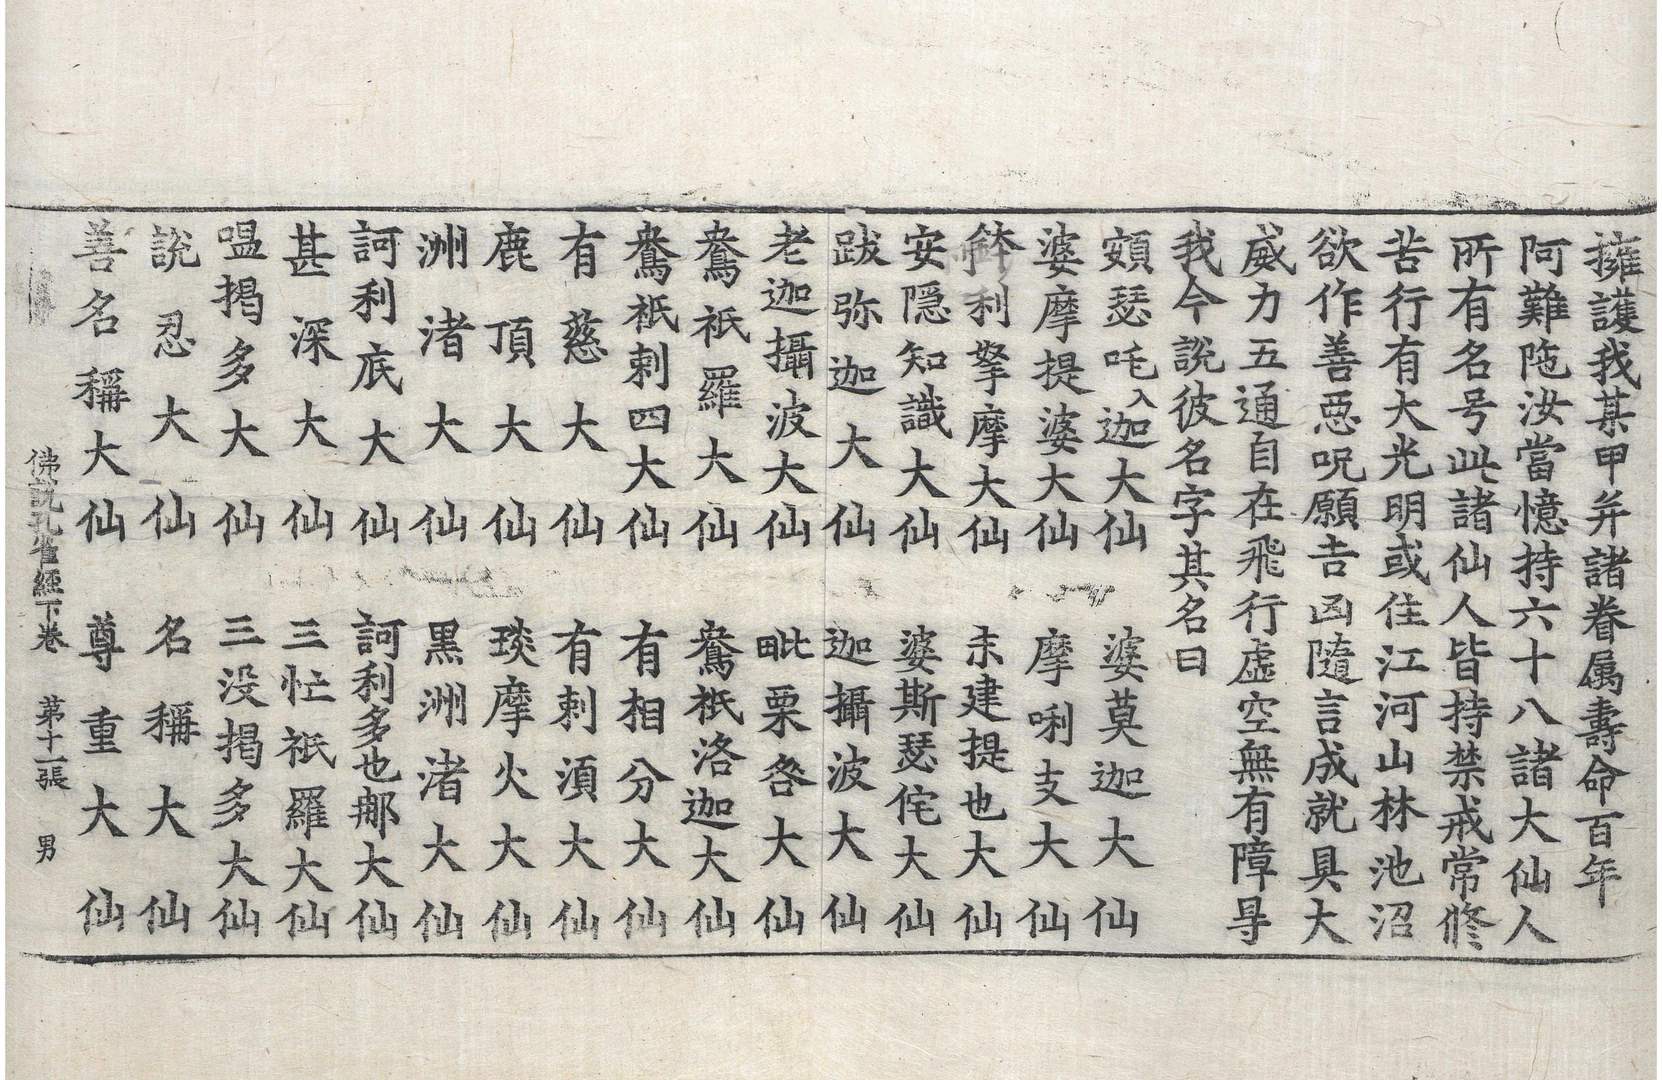 擁護我某甲并諸眷属壽命百年
阿難陁汝當憶持六十八諸大仙人
所有名号此諸仙人皆持禁戒常修
苦行有大光明或住江河山林池沼
欲作善惡呪願吉凶隨言成就具大
威力五通自在飛行虛空無有障㝵
我今說彼名字其名曰
頞瑟吒入迦大仙　婆莫迦大仙
婆摩提婆大仙　摩唎支大仙
鉢利拏摩大仙　末建提也大仙
安隱知識大仙　婆斯瑟侘大仙
跋弥迦大仙　迦攝波大仙
老迦攝波大仙　毗栗咎大仙
鴦祇羅大仙　鴦祇洛迦大仙
鴦祇剌四大仙　有相分大仙
有慈大仙　有剌湏大仙
鹿頂大仙　琰摩火大仙
洲渚大仙　黑洲渚大仙
訶利底大仙　訶利多也那大仙
甚深大仙　三忙祇羅大仙
嗢揭多大仙　三没揭多大仙
說忍大仙　名稱大仙
善名稱大仙　尊重大仙
佛說孔雀經下卷　第十一張　男